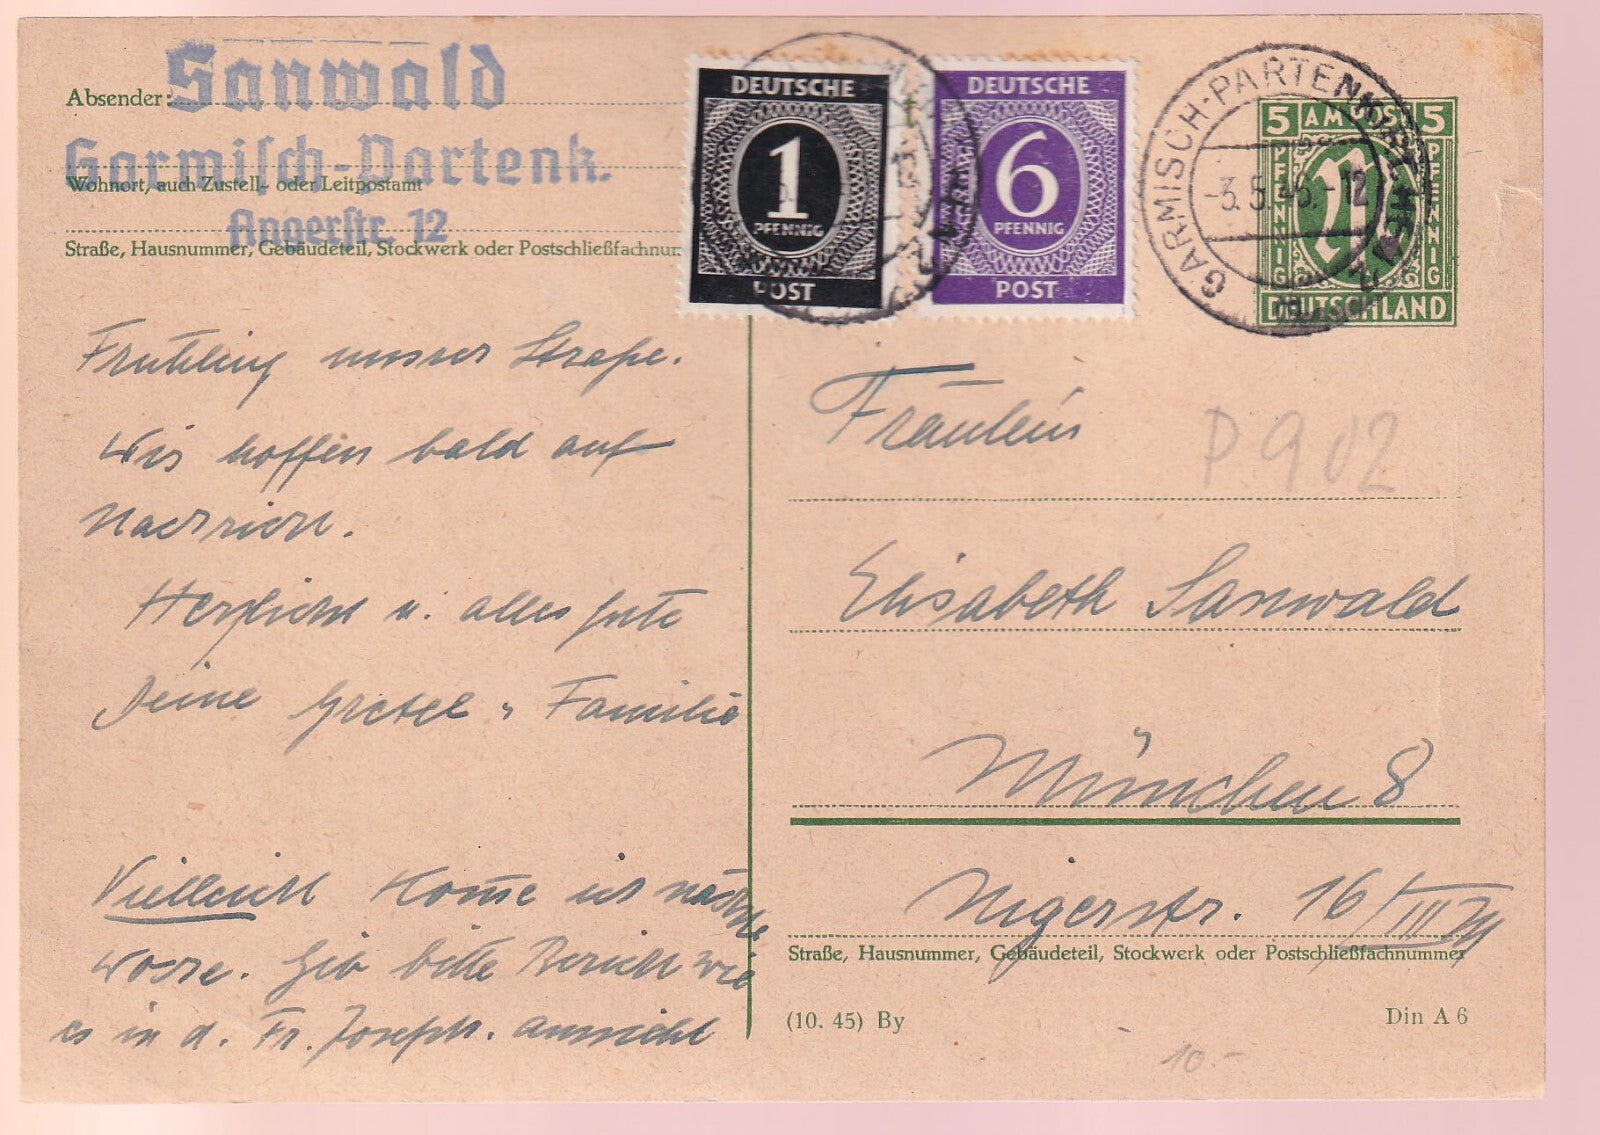 Absender:
Sanwald
Garmisch-Partenk.
Wohnort, auch Zustell- oder Leitpostamt
Angerstr. 12
Straße, Hausnummer, Gebäudeteil, Stockwerk oder Postschließfachnum
DEUTSCHE
1
PFENNIG
POST
DEUTSCHE
6
PFENNIG
POST
GARMISCH-PARTENKIRCHEN
-3.5.46.-12
5 AM POST 5
PFENNIG
PFENNIG
DEUTSCHLAND
Frühling unsrer Straße.
Wir hoffen bald auf
Nachricht.
Herzlichst u. alles gute
Deine Gretel u Familie
Vielleicht komme ich nächste
Woche. Gib bitte Bericht wie
es in d. Fr. Joseph. aussieht
Fräulein
P 902
Elisabeth Sanwald
München 8
Nigerstr. 16/III
Straße, Hausnummer, Gebäudeteil, Stockwerk oder Postschließfachnummer
(10. 45) By
Din A 6
10.-